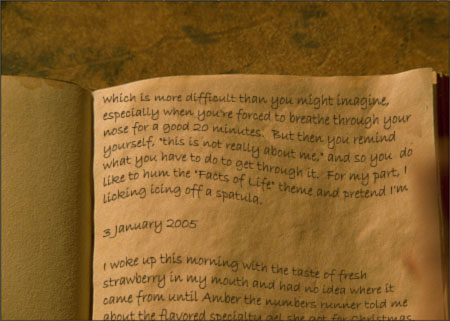 which is more difficult than you might imagine,
especially when you're forced to breathe through your
nose for a good 20 minutes. But then you remind
yourself, "this is not really about me," and so you do
what you have to do to get through it. For my part, I
like to hum the "Facts of Life" theme and pretend I'm
licking icing off a spatula.
3 January 2005
I woke up this morning with the taste of fresh
strawberry in my mouth and had no idea where it
came from until Amber the numbers runner told me
about the flavored specialty gel she got for Christmas